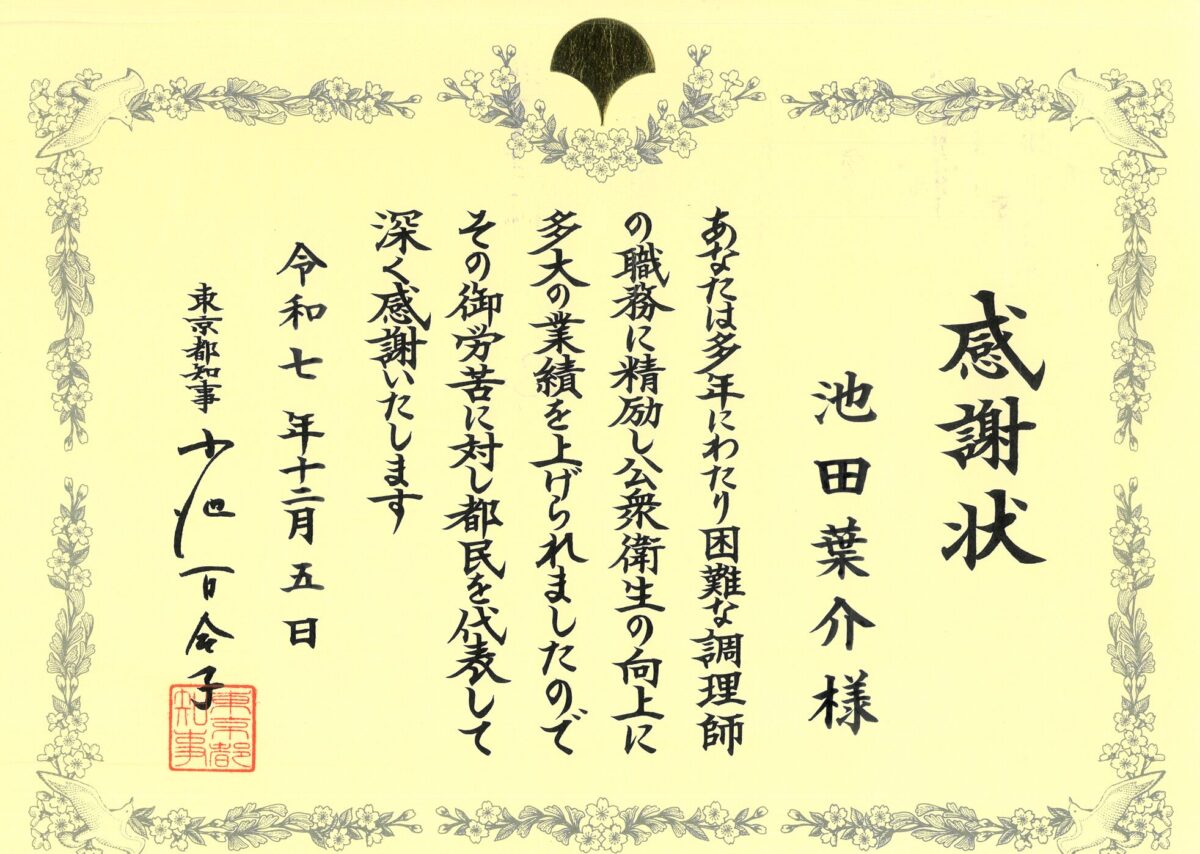 感謝状
池田葉介様
あなたは多年にわたり困難な調理師
の職務に精励し公衆衛生の向上に
多大の業績を上げられましたので
その御労苦に対し都民を代表して
深く感謝いたします
令和七年十二月五日
東京都知事 小池百合子
東京都
知事